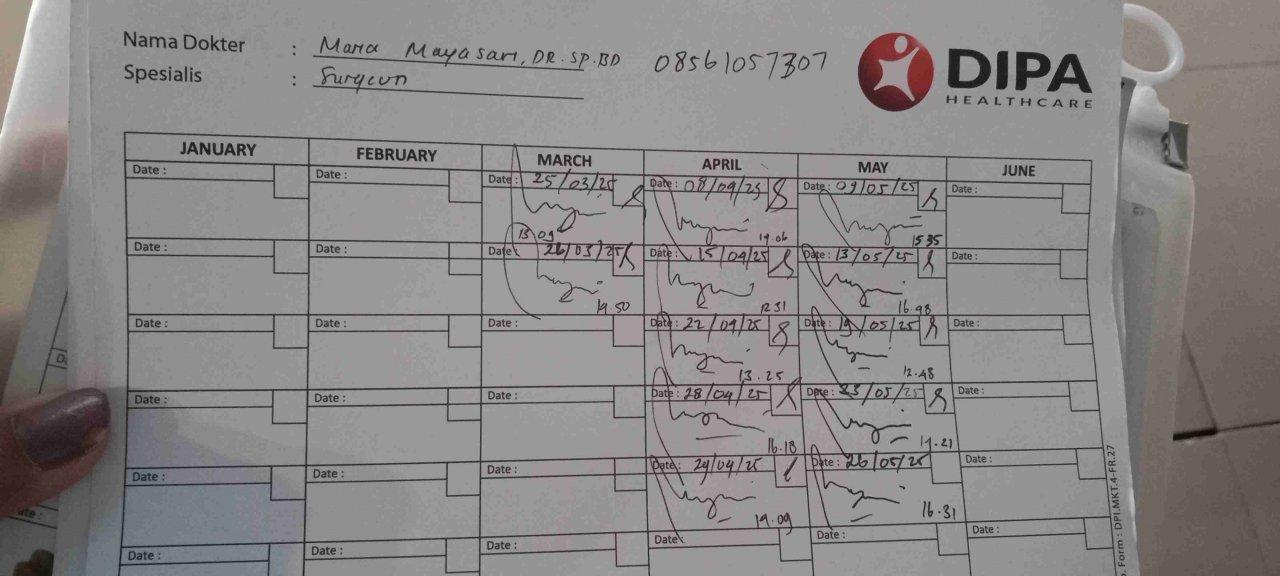 Nama Dokter : Maria Mayasari, DR.SP.BD 08561057307
Spesialis : Surgeon
DIPA
HEALTHCARE
JANUARY FEBRUARY MARCH APRIL MAY JUNE
Date : Date : Date : 25/03/25 Date : 08/04/25 Date : 09/05/25 Date :
13 09 14.06 15 35
Date : Date : Date : 26/03/25 Date : 15/04/25 Date : 13/05/25 Date :
14.50 12 31 16.48
Date : Date : Date : Date : 22/04/25 Date : 19/05/25 Date :
13.25 12.48
Date : Date : Date : Date : 28/04/25 Date : 23/05/25 Date :
16.18 14.21
Date : Date : Date : Date : 29/04/25 Date : 26/05/25 Date :
14.09 16.31
Date : Date : Date : Date Date : Date :
Form : DPI.MKT.4-FR.27